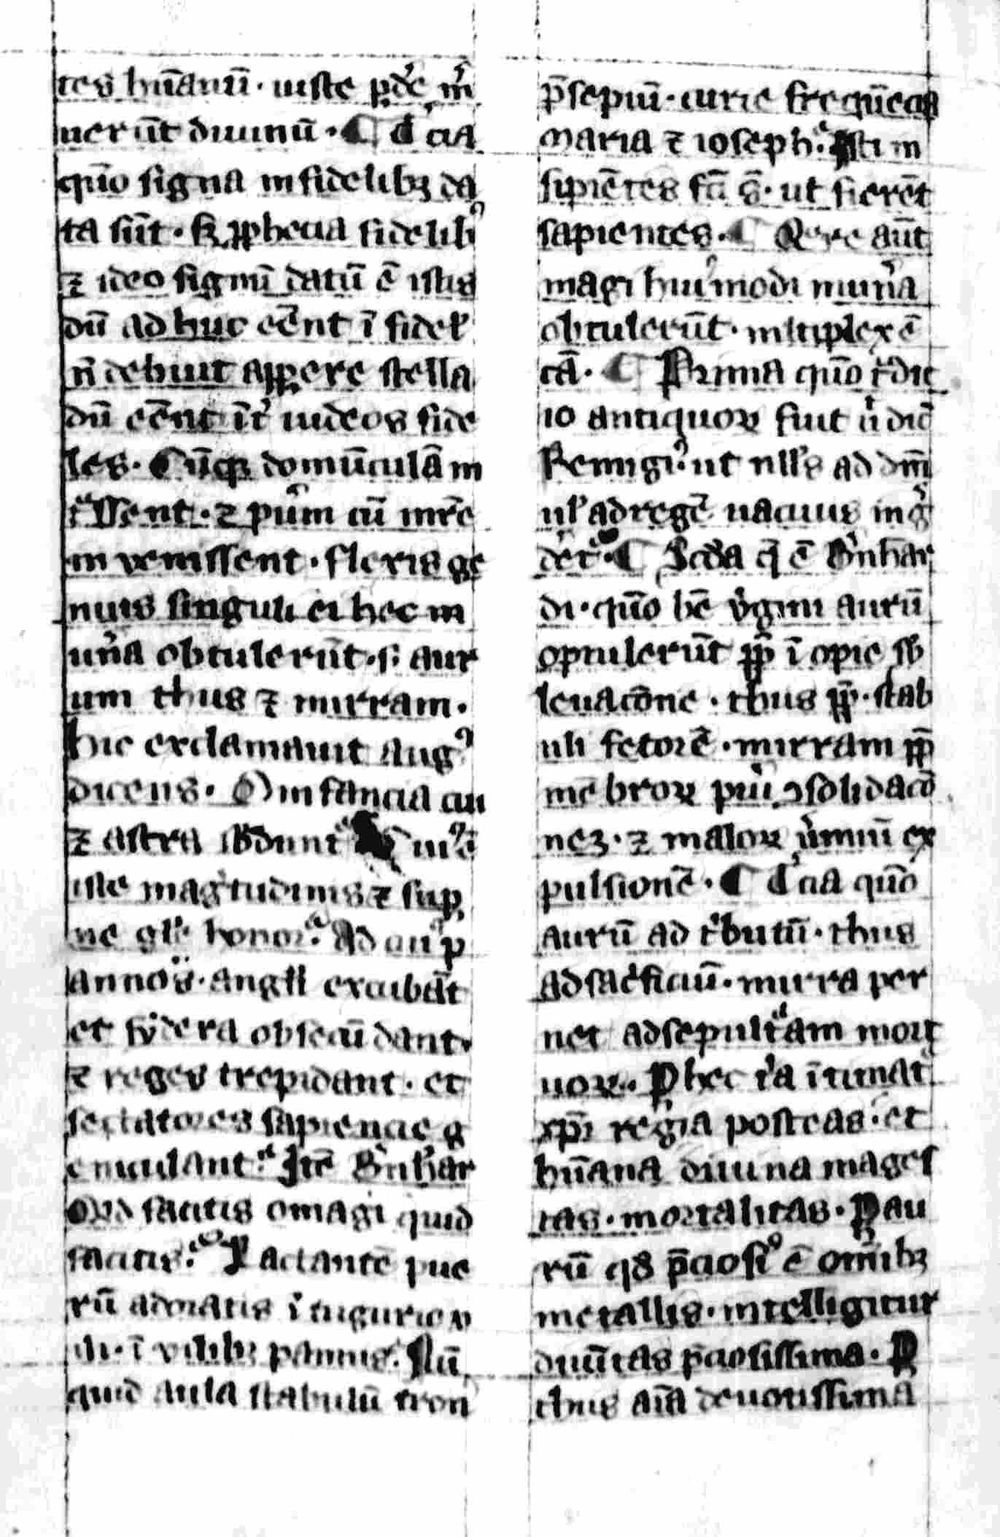 tes hūanū · iuste ꝑdē͛ m̄
uerūt diuinū · ¶ Tͨia
quō signa infidelibꝫ da
ta sūt · ſꝫ ꝓphecia fidelibꝰ
⁊ ideo signū datū ē istis
dū ad huc eēnt ī fidel'
n̄ debuit apꝑere stella
dū eēnt īt͛ iudeos fide
les · Cūqꝫ domūculā in
tͣssent · ⁊ pūm cū mr̄e
in uenissent · flexis ge
nuis singuli ei hec m
un͛a obtulerūt · s· aur
um thus ⁊ mirram ·
hic exclamauit augꝰ
dicens · O infancia cui
⁊ astra sb̄dunt͛ Cuiꝰ ē
iste magͥtudinis ⁊ suꝑ
ne gl'e honor · Ad cuiꝰ p
annos · angl'i excubāt
et sydera obsecūdant ·
⁊ reges trepidant · et
sectatores sapiencie g
enuculant · Itē B͛nhar
Qͥd facitis o magi quid
facitis · Lactantē pue
rū adoratis ī tugurio v
ili · ī vilibꝫ pannis · Nū
quid aula stabulū tron
p̄sepiū · curie freqūecia
Maria ⁊ ioseph · Isti in
sipiētes fc̄i s̄t · ut fierēt
sapientes · ¶ Qͣre aūt
magi huiꝰmodi mun͛a
obtulerūt · ml̄tiplex ē
cā · ¶ Prima quō tͣdit
io antiquoꝝ fuit ut dic̄
Remigiꝰ ut nll'us ad dm̄
ul' ad regē uacuus ing͛
det͛ · ¶ Scd̄a q̄ ē B͛nhar
di · quō bē v͛gini aurū
optulerūt ꝓpt͛ ī opie sb
leuacōne · thus ꝓpt͛ · stab
uli fetorē · mirram ꝓpt͛
mēbroꝝ pu͛i ꝯsolidacō
neꝫ · ⁊ maloꝝ v͛miū ex
pulsionē · ¶ Tͨia quō
aurū ad tͥbutū · thus
ad sacͥficiū · mirra per
net ad sepultͣam mort
uoꝝ · P hec tͥa ītimat͛
xp̄i regia potestas · et
hūana diuina mages
tas · mortalitas · Pau
rū qd̄ p̄ciosiꝰ ē om̄ibꝫ
metallis · intelligitur
diuītas p̄ciosissima · P
thus aīa deuotissima